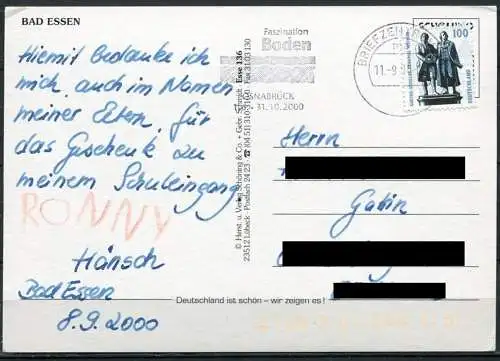 BAD ESSEN
Hiermit bedanke ich
mich, auch im Namen
meiner Eltern, für
das Geschenk zu
meinem Schuleingang.
RONNY
Hänsch
Bad Essen
8.9.2000
Faszination
Boden
OSNABRÜCK
- 31.10.2000
BRIEFZENTRUM
11.-9
100
DEUTSCHLAND
© Herst. u. Verlag Schöning & Co. + Gebr. Schmidt
23512 Lübeck · Postfach 24 23
Esse 136
Herrn
Deutschland ist schön – wir zeigen es!